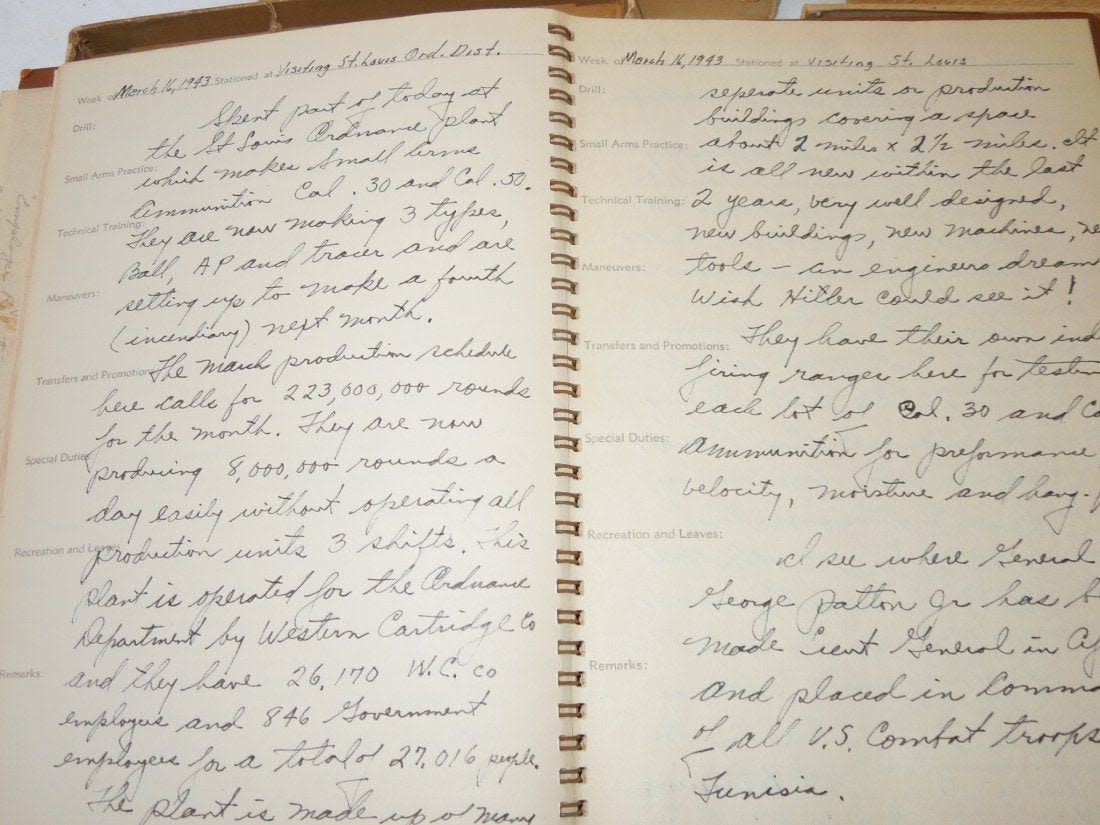 Week o March 16, 1943 Stationed at Visiting St. Louis Ord. Dist.
Drill:
Spent part of today at
the St Louis Ordnance plant
Small Arms Practice:
which makes Small Arms
Ammunition Cal. .30 and Cal. .50.
Technical Training:
They are now making 3 types,
Ball, AP and tracer and are
Maneuvers:
setting up to make a fourth
(incendiary) next month.
Transfers and Promotion
The March production schedule
here calls for 223,000,000 rounds
for the month. They are now
Special Duties
producing 8,000,000 rounds a
day easily without operating all
Recreation and Leaves
production units 3 shifts. This
plant is operated for the Ordnance
Department by Western Cartridge Co
Remarks:
and they have 26,170 W.C. co
employees and 846 Government
employees for a total of 27,016 people.
The plant is made up of many
Week o March 16, 1943 Stationed at Visiting St. Louis
Drill:
seperate units or production
buildings covering a space
Small Arms Practice:
about 2 miles x 2 1/2 miles. It
is all new within the last
Technical Training:
2 years, very well designed,
new buildings, new machines, ne
Maneuvers:
tools — an engineers dream
Wish Hitler could see it!
Transfers and Promotions:
They have their own ind
firing ranges here for testin
each lot of Cal. .30 and Ca
Special Duties:
Ammunition for preformance
velocity, moisture and hang-
Recreation and Leaves:
I see where General
George Patton Jr has b
made Lieut General in Af
Remarks:
and placed in Comma
of all U.S. Combat troops
Tunisia.